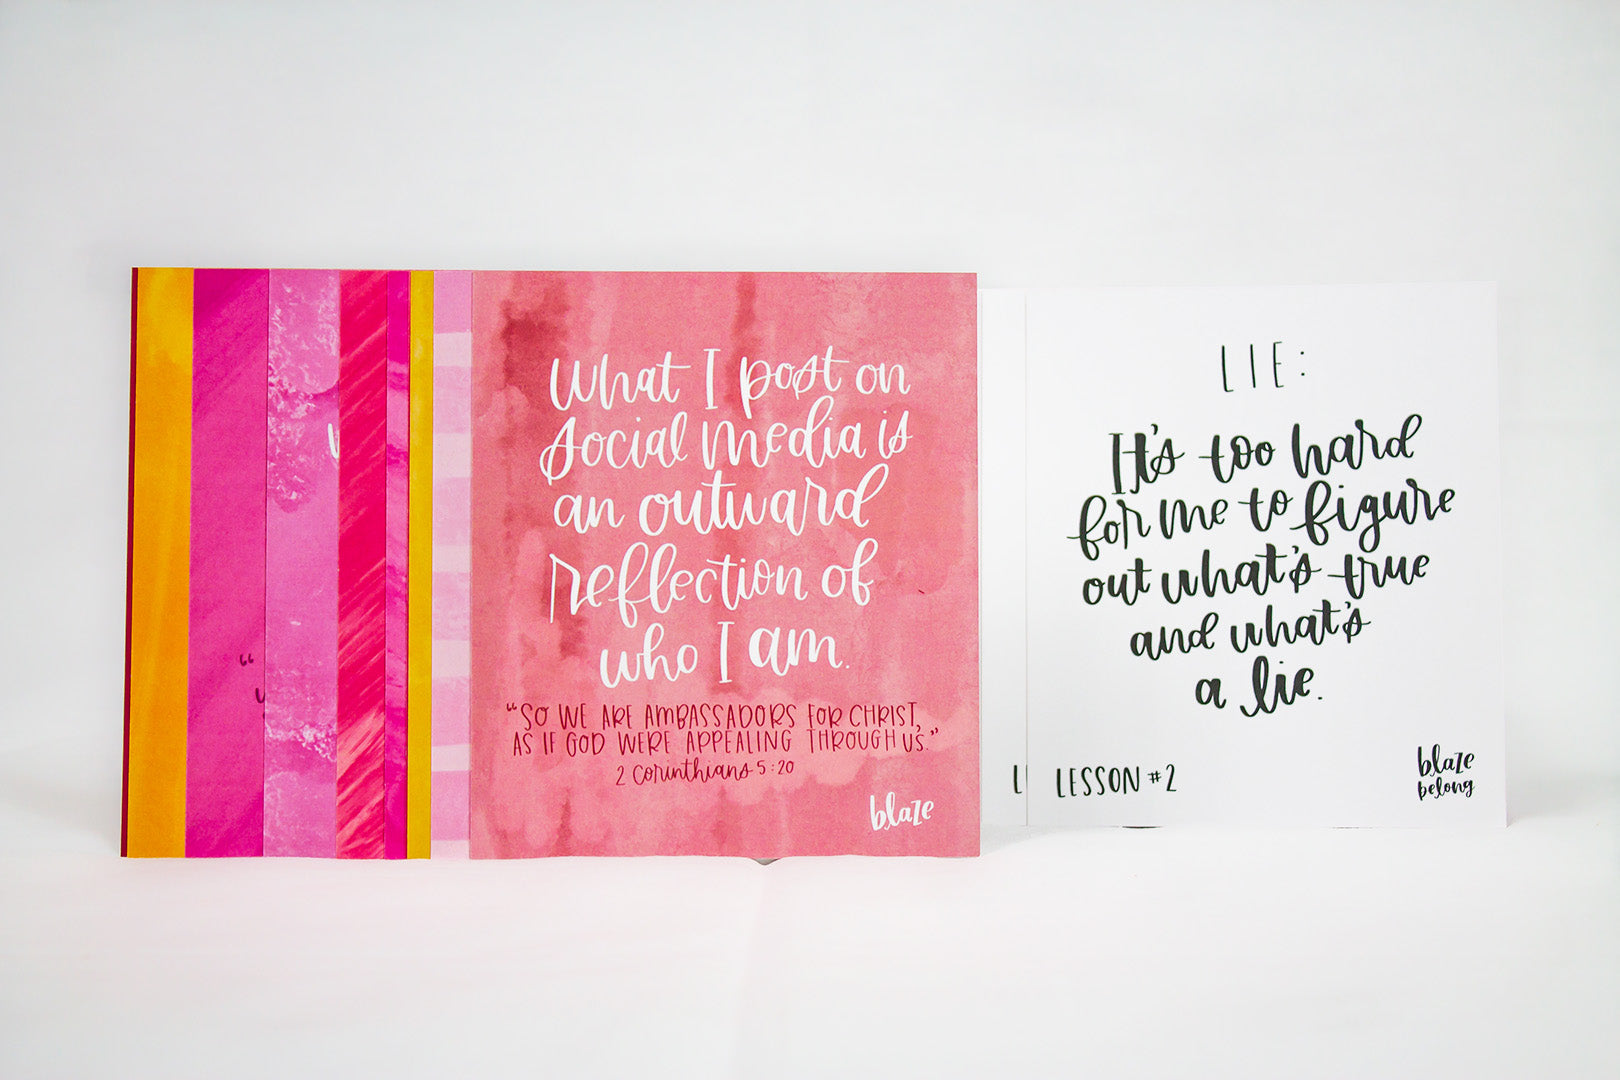 What I post on
social media is
an outward
reflection of
who I am.
“SO WE ARE AMBASSADORS FOR CHRIST,
AS IF GOD WERE APPEALING THROUGH US.”
2 Corinthians 5:20
blaze
LIE:
It's too hard
for me to figure
out what's true
and what's
a lie.
LESSON #2
blaze
belong